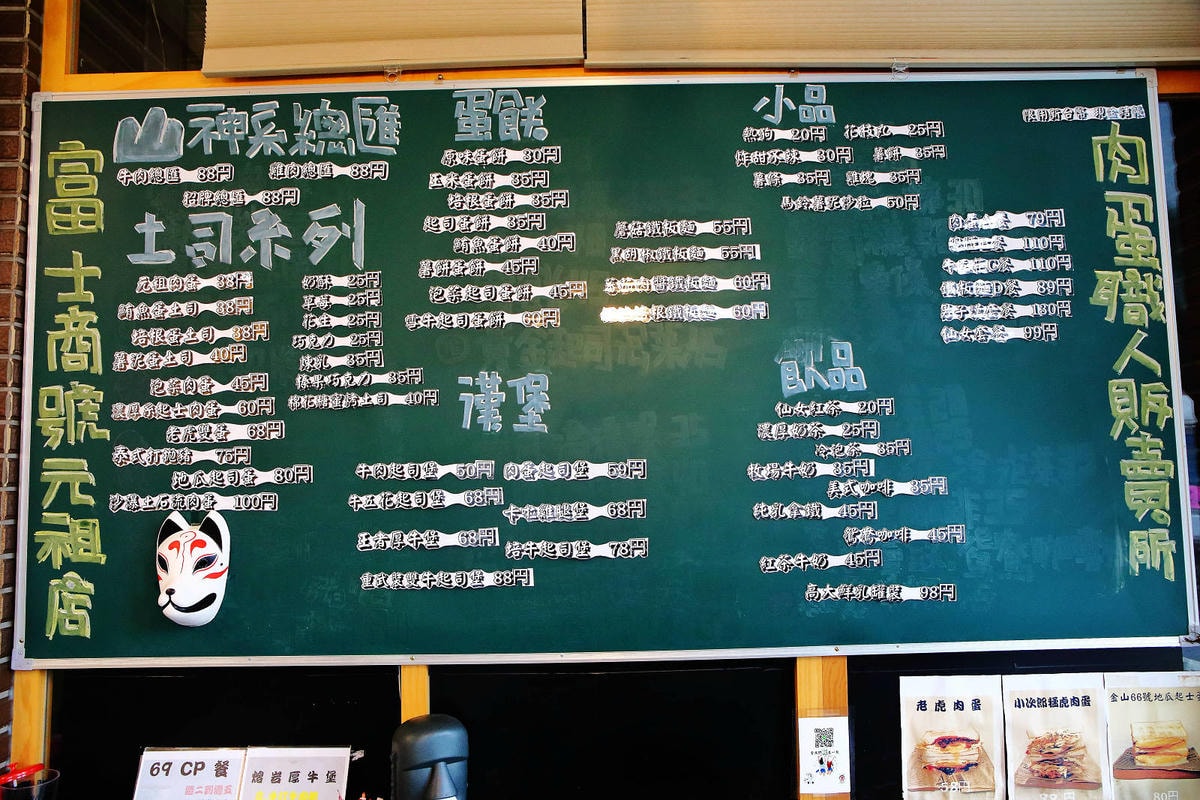 富士商號元祖店
山神系總匯
牛肉總匯 88円
雞肉總匯 88円
招牌總匯 88円
土司系列
元祖肉蛋 38円
鮪魚蛋土司 38円
培根蛋土司 38円
薯泥蛋土司 40円
泡菜肉蛋 45円
濃厚系起士肉蛋 60円
老虎雙蛋 68円
泰式打拋豬 75円
地瓜起司蛋 80円
沙瀑土石流肉蛋 100円
奶酥 25円
草莓 25円
花生 25円
巧克力 25円
煉乳 35円
榛果巧克力 35円
棉花糖蜜烤土司 40円
蛋餅
原味蛋餅 30円
玉米蛋餅 35円
培根蛋餅 35円
起司蛋餅 35円
鮪魚蛋餅 40円
薯餅蛋餅 45円
泡菜起司蛋餅 45円
雪牛起司蛋餅 60円
蘑菇鐵板麵 55円
黑胡椒鐵板麵 55円
肉醬鐵板麵 60円
根鐵板麵 60円
漢堡
牛肉起司堡 50円
肉蛋起司堡 59円
牛五花起司堡 68円
卡拉雞腿堡 68円
王者厚牛堡 68円
培牛起司堡 78円
重武裝雙牛起司堡 88円
小品
熱狗 20円
花枝丸 25円
炸甜不辣 30円
薯餅 35円
薯條 35円
雞塊 35円
馬鈴薯泥沙拉 50円
飲品
仙女紅茶 20円
濃厚奶茶 25円
冷泡茶 35円
牧場牛奶 35円
美式咖啡 35円
純乳拿鐵 45円
鴛鴦咖啡 45円
紅茶牛奶 45円
高大鮮乳罐裝 98円
79円
110円
110円
鐵板麵D餐 89円
130円
仙女套餐 99円
肉蛋職人販賣所
69 CP 餐
熔岩厚牛堡
老虎肉蛋
小次郎猛虎肉蛋
金山66號地瓜起士
80円